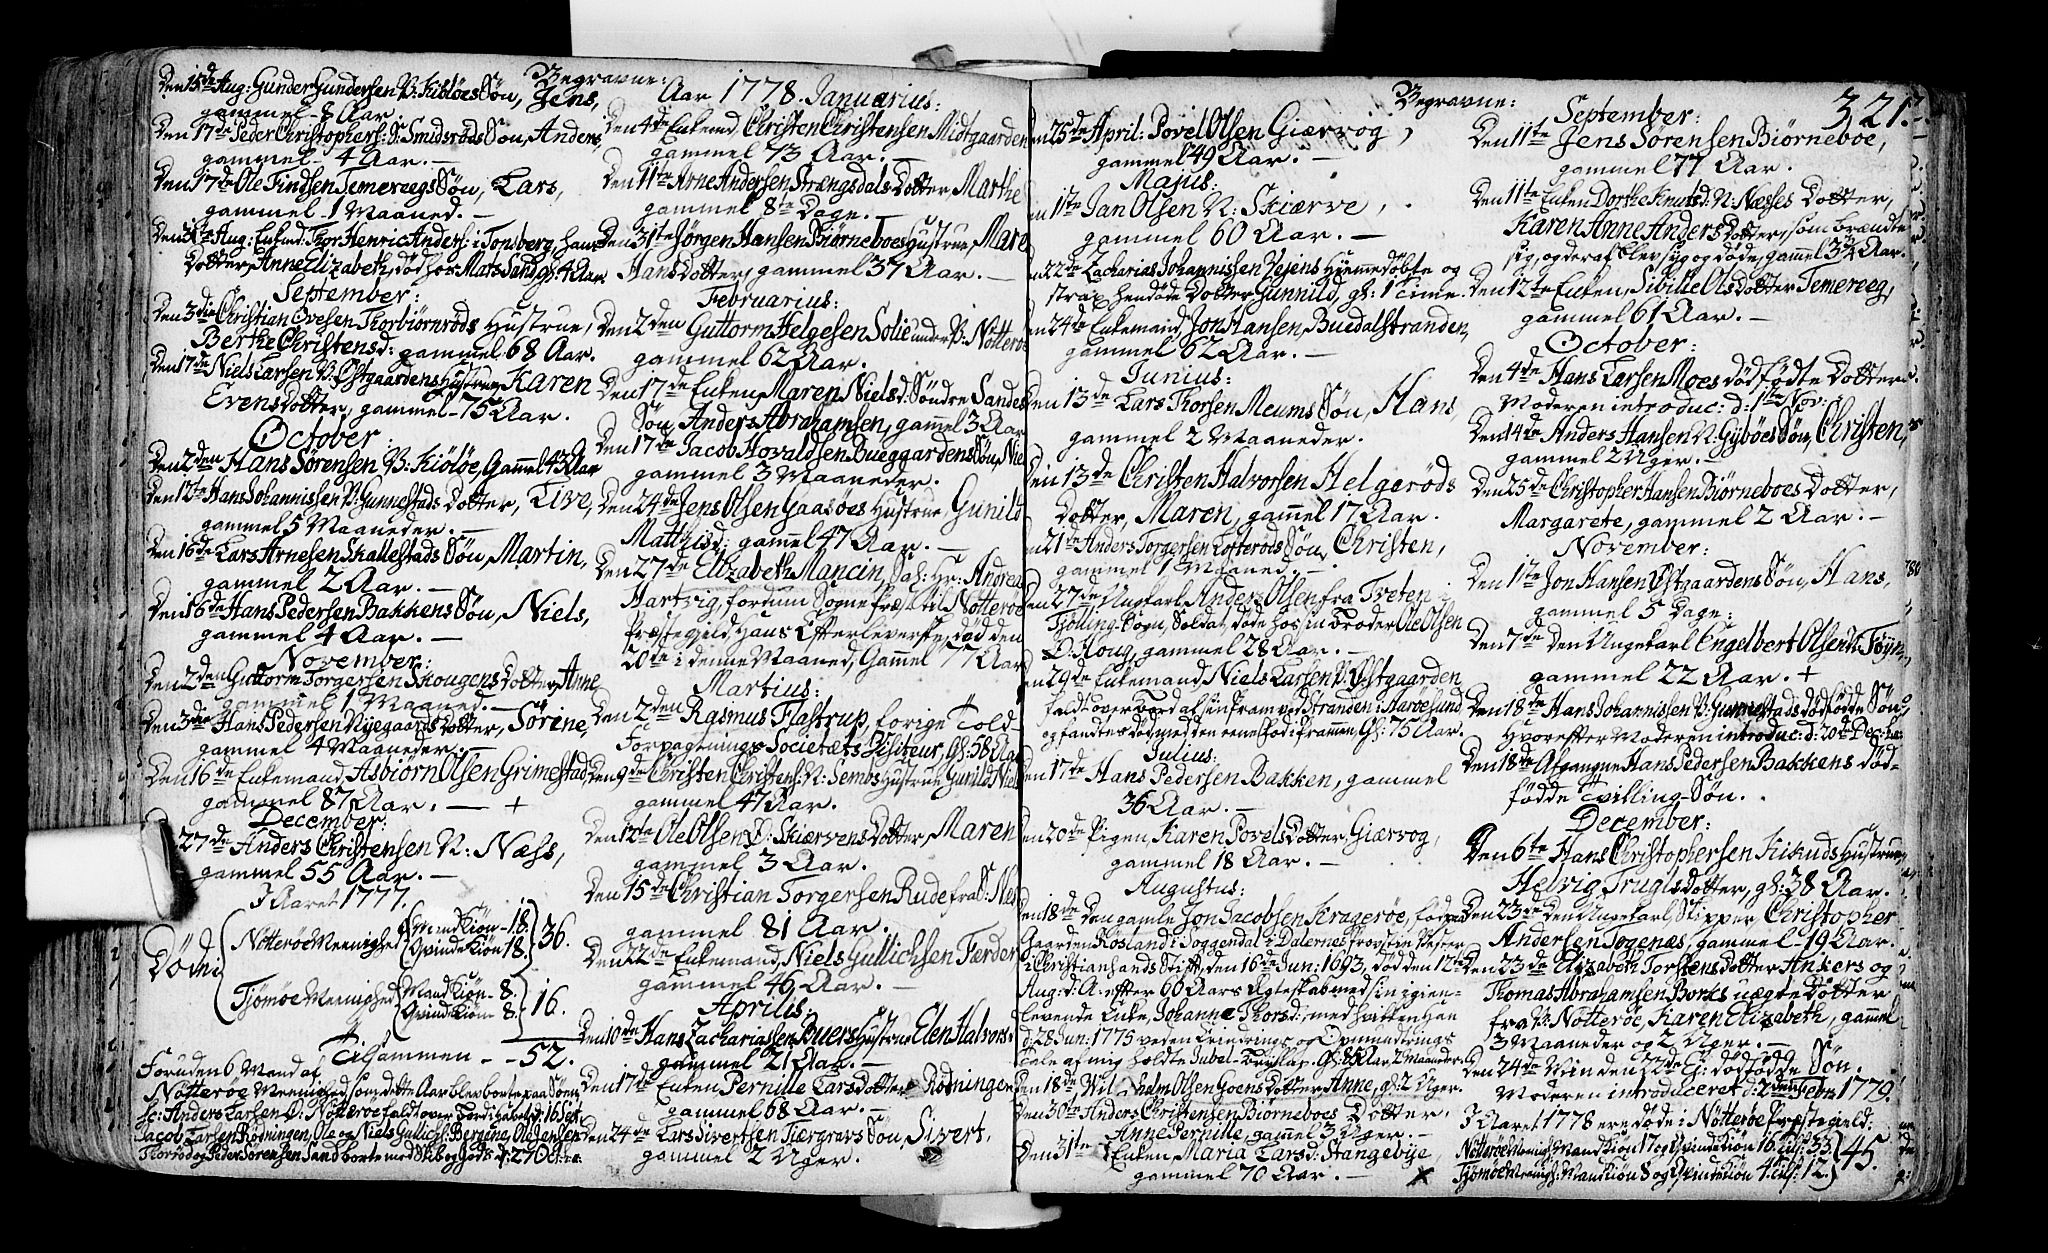 Begravne:
Den 15de Aug: Gunder Gundersen V: Kiøløes Søn, Jens,
gammel - 8 Aar. —
Den 17de Peder Christophers: S: Smidsrøds Søn, Anders,
gammel - 4 Aar. —
Den 17de Ole Findsen Temereegs Søn, Lars,
gammel - 1 Maaned. —
Aug: Enkem: Thor Henric Anders: i Tonsberg, hans
Dotter, Anne Elizabeth, død hos Mats Sand, gl: 4 Aar.
September:
Den 3die Christian Ovesen Thorbiørnrøds Hustrue,
Berthe Christensd: gammel. 68 Aar.
Den 17de Niels Larsen V: Østgaardens Hustrue Karen
Evens Dotter, gammel - 75 Aar.
October:
Den 2den Hans Sørensen V: Kiøløe, Gammel 43 Aar
Den 12te Hans Johannissen V: Gunnestads Dotter, Live,
gammel 5 Maaneder. —
Den 16de Lars Arnesen Skallestads Søn, Martin,
gammel 2 Aar. —
Den 16de Hans Pedersen Bakkens Søn, Niels,
gammel 4 Aar. —
November:
Den 2den Guttorm Torgersen Skougens Dotter, Anne,
gammel 1 Maaned. —
Den 3die Hans Pedersen Nyegaards Dotter, Sørine,
gammel 4 Maaneder. —
Den 16de Enkemand, Asbiørn Olsen Grimestad,
gammel 87 Aar. — +
December:
27de Anders Christensen N: Næss,
gammel 55 Aar. —
I Aaret 1777.
Døde i
Nøtterøe Meenighed Mandkiøn - 18. Qvindekiøn 18. 36.
Tjømøe Meenighed Mandkiøn - 8. Qvindekiøn 8. 16.
Tilsammen - - 52.
Foruden 6 Mænd af
Nøtterøe Meenighed som dette Aar blev borte paa Søen,
Anders Larsen Nøtterøe faldt over Bord d: 16 Sept:
Jacob Larsen Rødningen, Ole og Niels Gullichs: Bergene, Ole Jensen
Thorød og Peder Sørensen Sand borte med Skib og Gods d: 27 Oct:
Aar 1778. Januarius:
Den 4de Enkemd, Christen Christensen Midtgaarden
gammel 73 Aar. —
Den 11te Arne Andersen Strængsdals Dotter, Marthe
gammel 8te Dage. —
Den 31te Jørgen Hansen Biørneboes Hustrue, Mare
Hans Dotter, gammel 37 Aar. —
Februarius:
Den 2den Guttorm Helgesen Solie under V: Nøtterøe
gammel 62 Aar.
Den 17de Enken Maren Nielsd: Søndre Sandes
Søn, Anders Abrahamsen, gamel 3 Aar
Den 17de Jacob Hovaldsen Bueggaardens Søn, Nie
gammel 3 Maaneder.
Den 24de Jens Olsen Gaasøes Hustrue Gunild
Mathisd: gamel 47 Aar. —
Den 27de Elizabeth Mancin, Sal: Hr: Andrea
Hartvig, fordum Sogne Præst til Nøtterøe
Præstegield, Hans Efterleverske, død den
20de i denne Maaned, Gammel 77 Aar
Martius:
Den 2den Rasmus Flastrup, forige Told-
Forpagtnings Societæts Visiteur, Gl: 58 Aar
Den 9de Christen Christens: N: Sembs Hustrue Gunild Niel
gammel 47 Aar.
Ole Olsen Ø: Skiærvens Dotter, Maren
gammel 3 Aar.
Den 15de Christian Torgersen Rude fra S: Nes
gammel 81 Aar.
Den 22de Enkemand, Niels Gullichsen Færder
gammel 46 Aar. —
Aprilis:
Den 10de Hans Zachariassen Buers Hustrue Elen Halvors
gammel 21 Aar. —
Den 17de Enken Pernille Lars Dotter Rødningen
gammel 68 Aar. —
Den 24de Lars Sivertsen Tiærgravs Søn, Sivert,
gammel 2 Uger.
Begravne:
321.
Den 25de April: Povel Olsen Giærvog,
gammel 49 Aar. —
Majus:
1ste Jan Olsen N: Skiærve,
gammel 60 Aar. —
22de Zacharias Johannissen Vejens Hiemmedøbte og
strax hendøde Dotter Gunnild, gl: 1 Time.
24de Enkemand, Jon Hansen, Buedalstranden,
gammel 62 Aar. —
Junius:
Den 13de Lars Thorsen Meums Søn, Hans,
gammel 2 Maaneder.
Den 13de Christen Halvorsen Helgerøds
Dotter, Maren, gammel 17 Aar.
21de Anders Torgersen Lofterøds Søn, Christen,
gammel 1 Maaned. —
27de Ungkarl Anders Olsen fra Tveten i
Tjølling Sogn, Soldat, døde hos sin Broder Ole Olsen
Ø: Houg, gammel 28 Aar. —
29de Enkemand, Niels Larsen V: Østgaarden
faldt over Bord af sin Pram ved Stranden i Harøesund
og fandtes død med den eene Fod i Prammen, Gl: 75 Aar.
Julius:
17de Hans Pedersen Bakken, gammel
36 Aar. —
Den 20de Pigen Karen Povels Dotter, Giærvog,
gammel 18 Aar. —
Augustus:
Den 18de Den gamle Jon Jacobsen Kragerøe, født paa
Gaarden Røsland i Soggendal i Dalernes Provstie Vester
i Christiansands Stift, den 16de Jun: 1693, død den 12te
Aug: d: A. efter 60 Aars Ægteskab med sin igien-
levende Enke, Johanne Thorsd: med hvilken Han
d: 28 Jun: 1775 ved en Erindrings og Opmuntrings
Tale af mig holdte Jubel-Bryllup. Gl: 85 Aar, 2 Maaneder.
Den 18de Wilhelm Olsen Goens Dotter, Anne, gl: 2 Uger.
Den 30te Anders Christensen Biørneboes Dotter,
Anne Pernille, gammel 3 Uger. —
Den 31te Enken Maria Larsd: Stangebye,
gammel 70 Aar. —
September:
Den 11te Jens Sørensen Biørneboe,
gammel 77 Aar.
Den 11te Enken Dorthe Knutsd: N: Næsses Dotter,
Karen Anne Anders Dotter, som brændte
sig, og deraf blev syg og døde, gamel 3¾ Aar.
Den 12te Enken, Sibille Ols Dotter Temereeg,
gammel 61 Aar. —
October:
Den 4de Hans Larsen Moes dødfødte Dotter.
Moderen introduc: d: 1ste Nov:
Den 14de Anders Hansen N: Gybøes Søn, Christen,
gammel 2 Uger. —
Den 25de Christopher Hansen Biørneboes Dotter,
Margarete, gammel 2 Aar. —
November:
Den 1ste Jon Hansen Østgaardens Søn, Hans,
gammel 5 Dage:
Den 7de den Ungekarl Engelbert Olsen N: Føyn,
gammel 22 Aar. +
Den 18de Hans Johannissen V: Gunnestads dødfødde Søn,
Hvorefter Moderen introduc: d: 20de Dec:
Den 18de Afgangne Hans Pedersen Bakkens død-
fødde Tvilling-Søn.
December:
Den 6te Hans Christophersen Kikuds Hustrue,
Helvig Truels Dotter, gl: 38 Aar.
Den 23de Den Ungekarl Skipper Christopher
Andersen Togenæs, gammel - 19 Aar.
Den 23de Elizabeth Torstens Dotter Ankers og
Thomas Abrahamsen Borks uægte Dotter
fra V: Nøtterøe, Karen Elizabeth, gammel
3 Maaneder og 2 Uger. —
Den 24de Min den 22de E: dødfødde Søn.
Moderen introduceret d: 2den Febr: 1779.
I Aaret 1778 ere døde i Nøtterøe Præstegield:
Nøtterøe Menigh: Mandkiøn 17 og Qvindekiøn 16. tils: 33.
Tjømøe Menigh: Mandkiøn 8 og Qvindekiøn 4. tils: 12.
45.